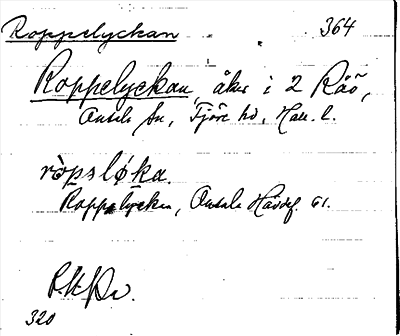 Roppelyckan 364
Roppelyckan, åker i 2 Råö,
Onsala sn, Fjäre hd, Hall. l.
ròpsløka.
Roppelyckan, Onsala Häradsf. 61.
320